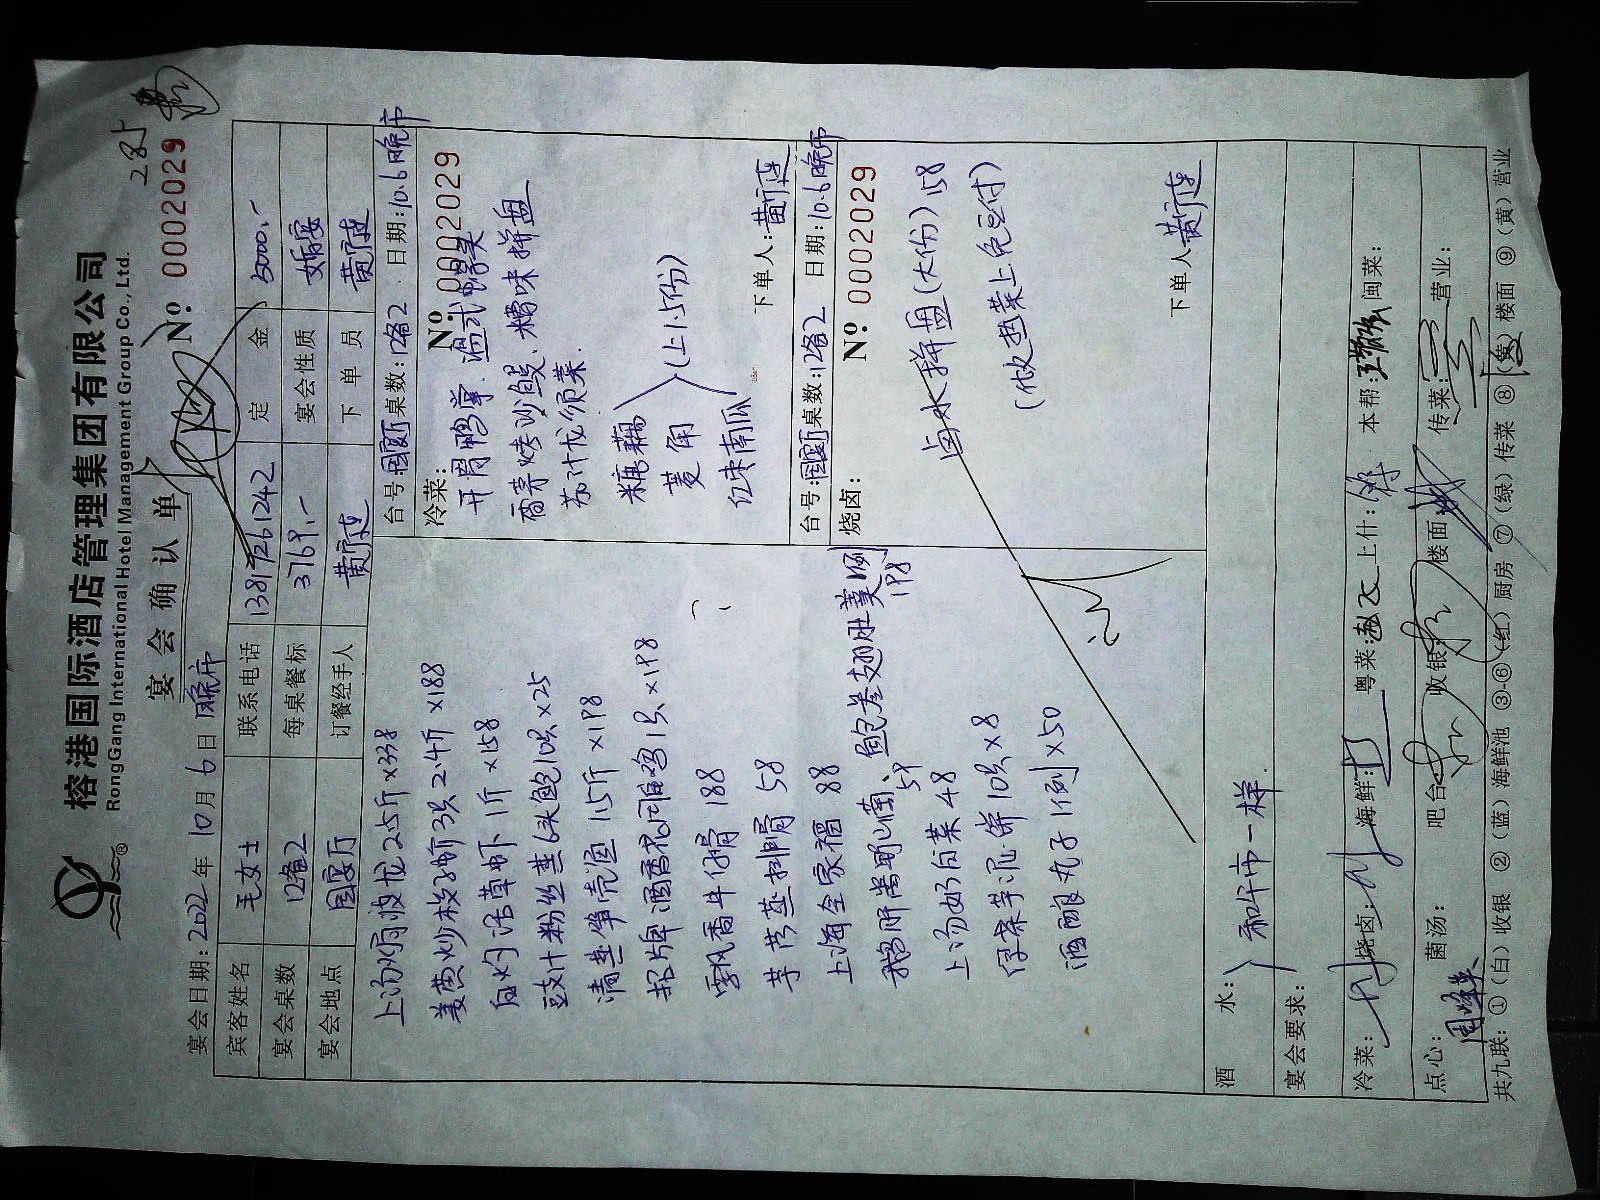 榕港国际酒店管理集团有限公司
RongGang International Hotel Management Group Co., Ltd.
宴会确认单
№ 0002029
宴会日期: 2022年10月6日 晚市
宾客姓名 毛女士 联系电话 13817261242 定金 5000.-
宴会桌数 12备2 每桌餐标 3769.- 宴会性质 婚宴
宴会地点 国宴厅 订餐经手人 下单员
上汤焗波龙2.5斤×338
姜黄炒梭子蟹3只2.4斤×188
白灼活草虾1斤×158
豉汁粉丝蒸6头鲍10只×25
清蒸笋壳鱼1.5斤×198
招牌酒香花雕鸡1只×198
雪域香牛仔骨188
芋艿蒸排骨58
上海全家福88
鹅肝酱野山菌 59
鲍参翅肚羹1例 198
上汤奶白菜48
10只×8
酒酿丸子1例×50
台号: 国宴厅 桌数: 12备2 日期: 10.6晚市
№ 0002029
冷菜:
开胃鸭掌、温式
香茅烤沙鳗、糟味拼盘
苏汁龙须菜.
糖藕
菱角
红枣南瓜
(上15份)
下单人:
台号: 国宴厅 桌数: 12备2 日期: 10.6晚市
№ 0002029
烧卤:
卤水拼盘(大份)158
(做热菜上免豆付)
下单人:
酒水:
宴会要求:
和午市一样.
冷菜: 烧卤: 海鲜: 粤菜: 上什: 本帮: 闽菜:
点心: 菌汤: 吧台: 收银: 楼面: 传菜: 营业:
共九联: ①(白)收银 ②(蓝)海鲜池 ③-⑥(红)厨房 ⑦(绿)传菜 ⑧(黄)楼面 ⑨(黄)营业